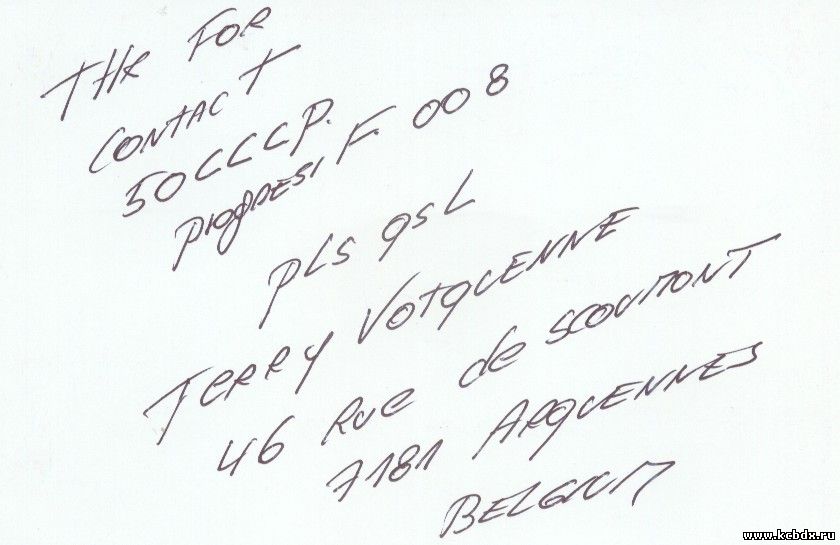 THX FOR
CONTACT
50CCCP.
PROGRESI F. 008
PLS QSL
TERRY VOTQUENNE
46 Rue de SCOUMONT
7181 ARQUENNES
BELGIUM
www.kcbdx.ru